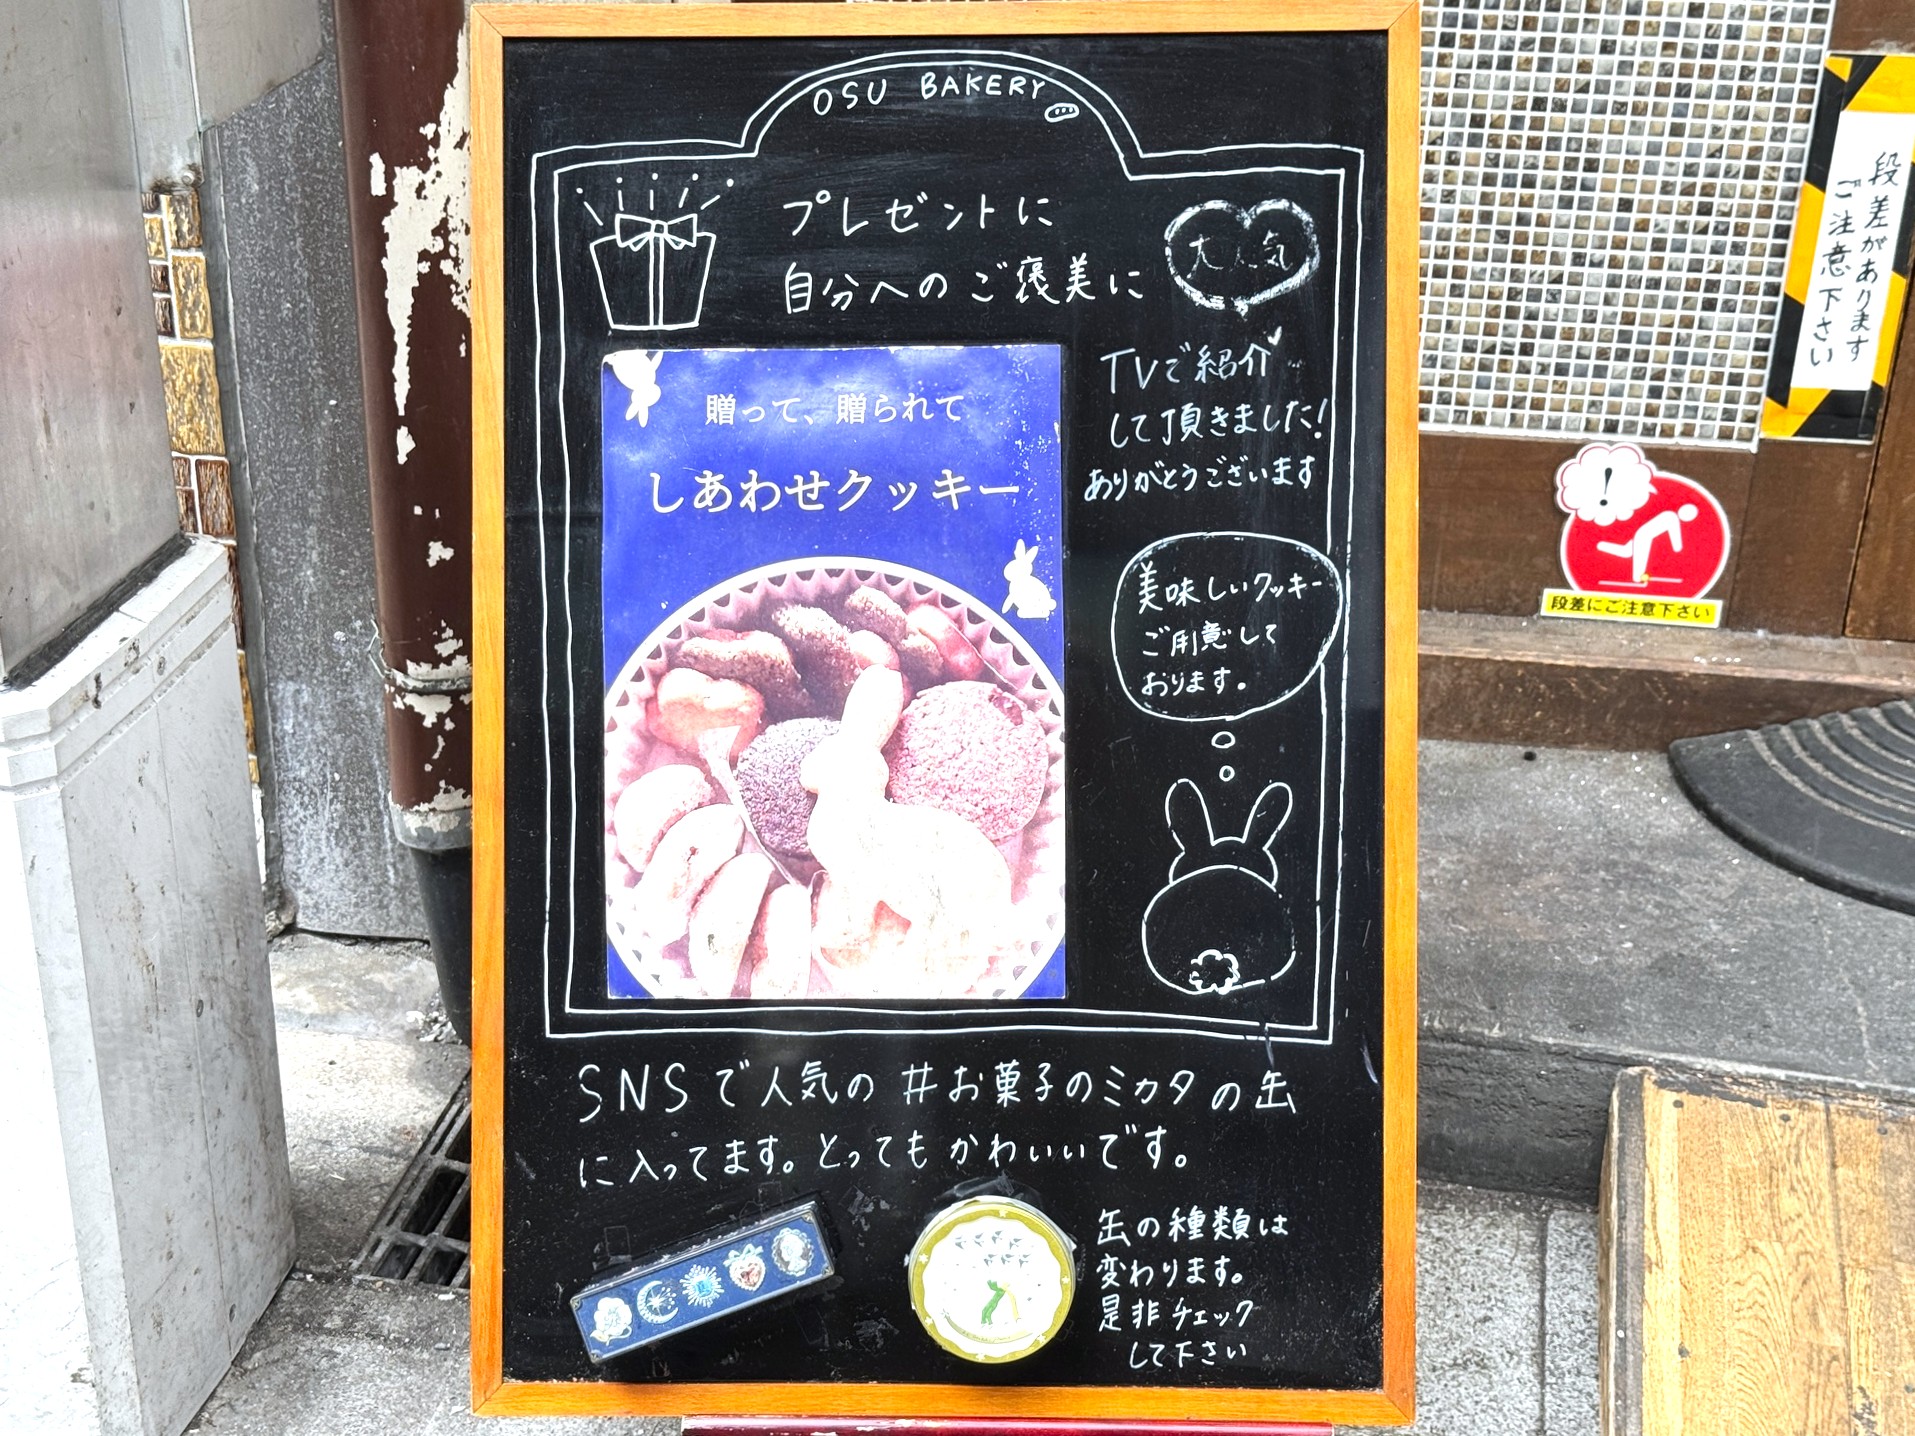 OSU BAKERY
プレゼントに
自分へのご褒美に
大人気
TVで紹介
して頂きました!
ありがとうございます
贈って、贈られて
しあわせクッキー
美味しいクッキー
ご用意して
おります。
SNSで人気の#お菓子のミカタの缶
に入ってます。とってもかわいいです。
缶の種類は
変わります。
是非チェック
して下さい
段差があります
ご注意下さい
!
段差にご注意下さい